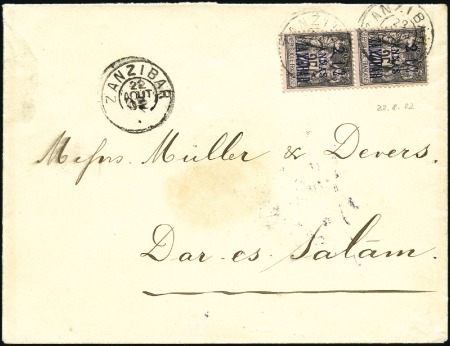 ZANZIBAR
ZANZIBAR
ZANZIBAR
22
AOUT
02
22.8.02
Messrs. Müller & Devers.
Dar-es-Salâm.